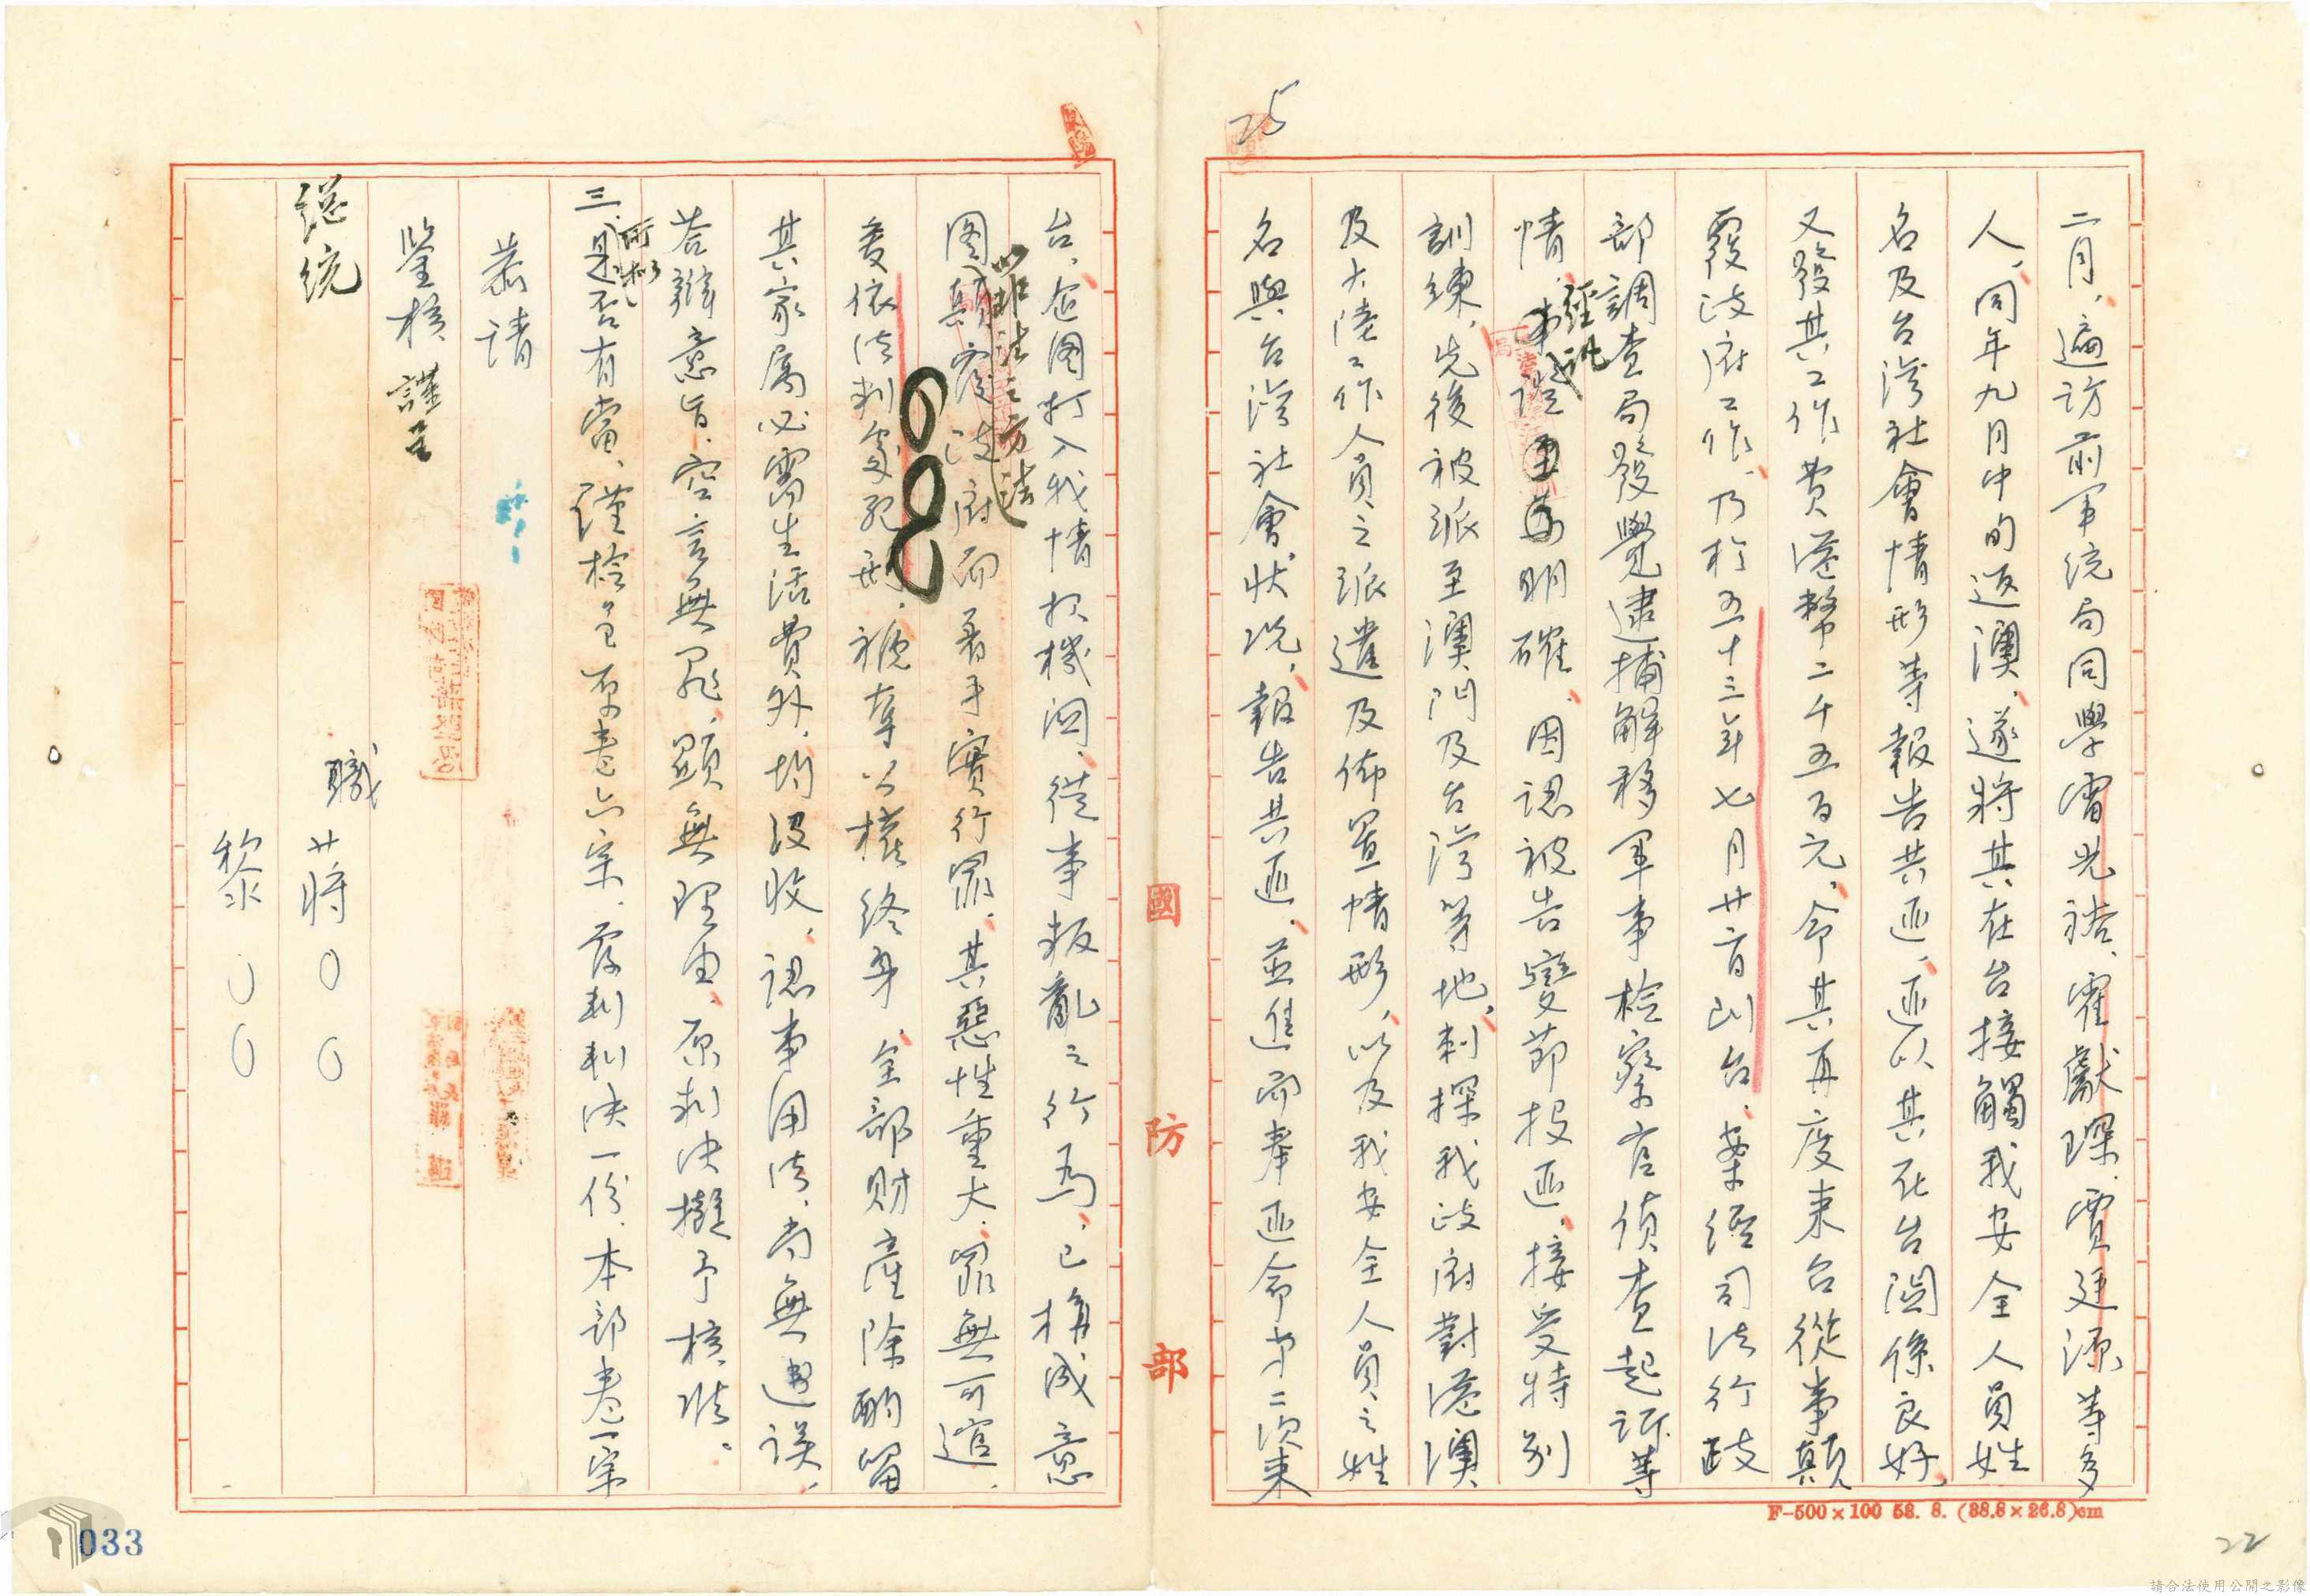 25
二月，遍訪前軍統局同學雷光裕、霍獻琛、賈廷源等多
人，同年九月中旬返澳，遂將其在台接觸我安全人員姓
名及台灣社會情形等報告共匪，匪以其在台關係良好，
又發其工作費港幣二千五百元，命其再度來台從事顛
覆政府工作，乃於五十三年七月廿  日到台，案經司法行政
部調查局發覺逮捕解移軍事檢察官偵查起訴等
情，經訊事證明確，因認被告變節投匪，接受特別
訓練，先後被派至澳門及台灣等地，刺探我政府對港澳
及大陸工作人員之派遣及佈置情形，以及我安全人員之姓
名與台灣社會狀況，報告共匪，並進而奉匪命第二次來
台，企圖打入我情報機關，從事叛亂之行為，已構成意
圖以非法之方法顛覆政府而著手實行罪，其惡性重大，罪無可逭，
爰依法判處死刑，褫奪公權終身，全部財產除酌留
其家屬必需生活費外，均沒收，認事用法，尚無違誤，
答辯意旨，空言無罪，顯無理由，原判決擬予核准。
三、所擬是否有當，謹檢呈原卷六宗、覆判判決一份、本部卷一宗
恭請
鑒核 謹呈
總統
職 廿蔣〇〇
黎〇〇
國防部
F-500×100 53. 8. (38.8×26.8)cm
033
22
請合法使用公開之影像